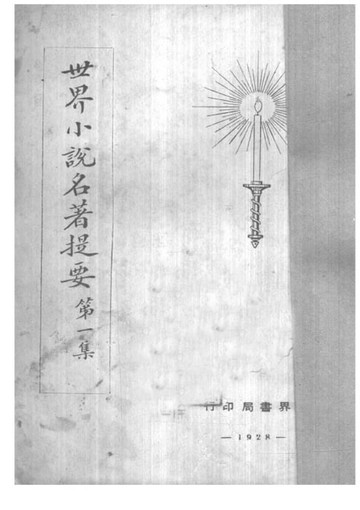 世界小說名著提要 第一集
界書局印行
—1928—